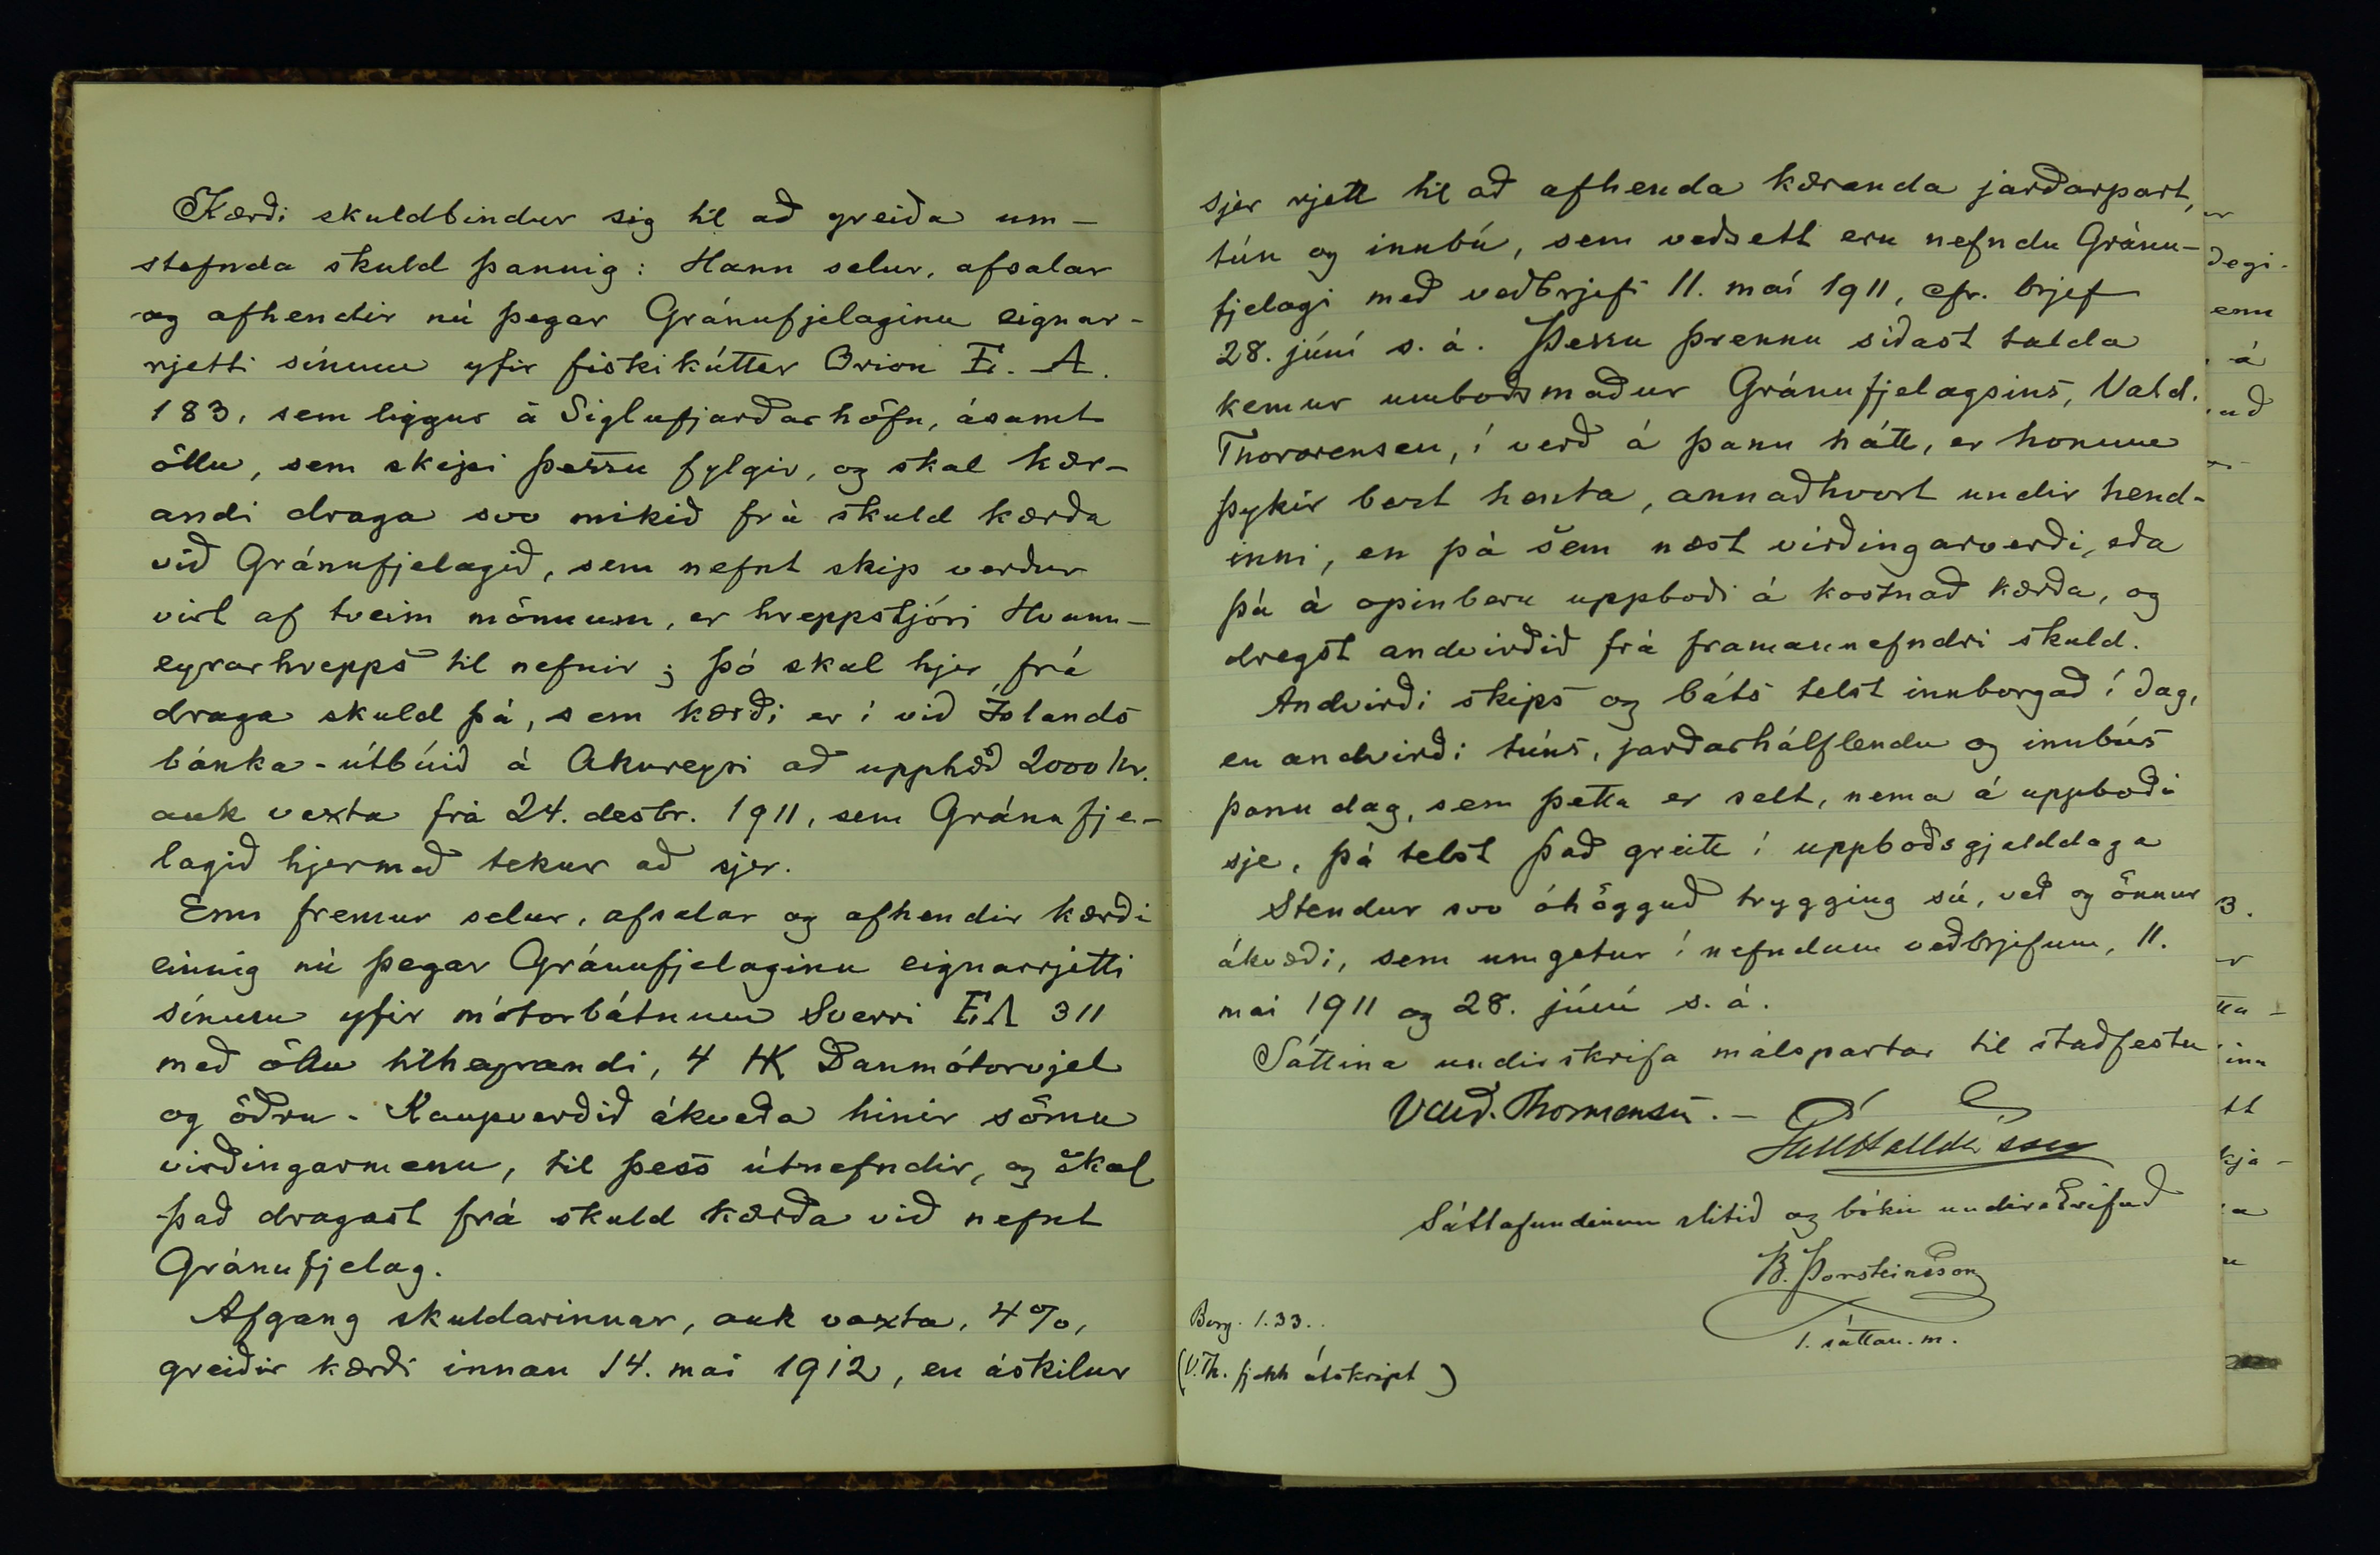 Kærði skuldbindur sig til að greiða um-
stefnda skuld þannig: Hann selur, afsalar
og afhendir nú þegar Gránufjelaginu eignar-
rjetti sínum yfir fiskikútter Orion E. A.
183, sem liggur á Siglufjarðarhöfn, ásamt
öllu, sem skipi þessu fylgir, og skal kær-
andi draga svo mikið frá skuld kærða
við Gránufjelagið, sem nefnt skip verður
virt af tveim mönnum, er hreppstjóri Hvann-
eyrarhrepps til nefnir; þó skal hjer frá
draga skuld þá, sem kærði er í við Íslands
bánka-útbúið á Akureyri að upphæð 2000 kr.
auk vexta frá 24. desbr. 1911, sem Gránufje-
lagið hjermeð tekur að sjer.
Enn fremur selur, afsalar og afhendir kærði
einnig nú þegar Gránufjelaginu eignarrjetti
sínum yfir mótorbátnum Sverri EA 311
með öllu tilheyrandi, 4 HK Danmótorvjel
og öðru. Kaupverðið ákveða hinir sömu
virðingarmenn, til þess útnefndir, og skal
það dragast frá skuld kærða við nefnt
Gránufjelag.
Afgang skuldarinnar, auk vaxta, 4%,
greiðir kærði innan 14. maí 1912, en áskilur
sjer rjett til að afhenda kæranda jarðarpart,
tún og innbú, sem veðsett eru nefndu Gránu-
fjelagi með veðbrjefi 11. maí 1911, cfr. brjef
28. júní s. á. Þessu þrennu síðast talda
kemur umboðsmaður Gránufjelagsins, Vald.
Thorarensen, í verð á þann hátt, er honum
þykir best henta, annaðhvort undir hend-
inni, en þá sem næst virðingarverði, eða
þá á opinberu uppboði á kostnað kærða, og
dregst andvirðið frá framannefndri skuld.
Andvirði skips og báts telst innborgað í dag,
en andvirði túns, jarðarhálflendu og innbús
þann dag, sem þetta er selt, nema á uppboði
sje, þá telst það greitt í uppboðsgjalddaga
Stendur svo óhögguð trygging sú, veð og önnur
ákvæði, sem umgetur í nefndum veðbrjefum, 11.
maí 1911 og 28. júní s. á.
Sáttina undirskrifa málspartar til staðfestu
Vald. Thorarensen. -
Sáttafundinum slitið og bókin undirskrifuð
B. Þorsteinsson
1. sáttan.m.
Borg. 1.33.
(V.Th. fjekk útskript)